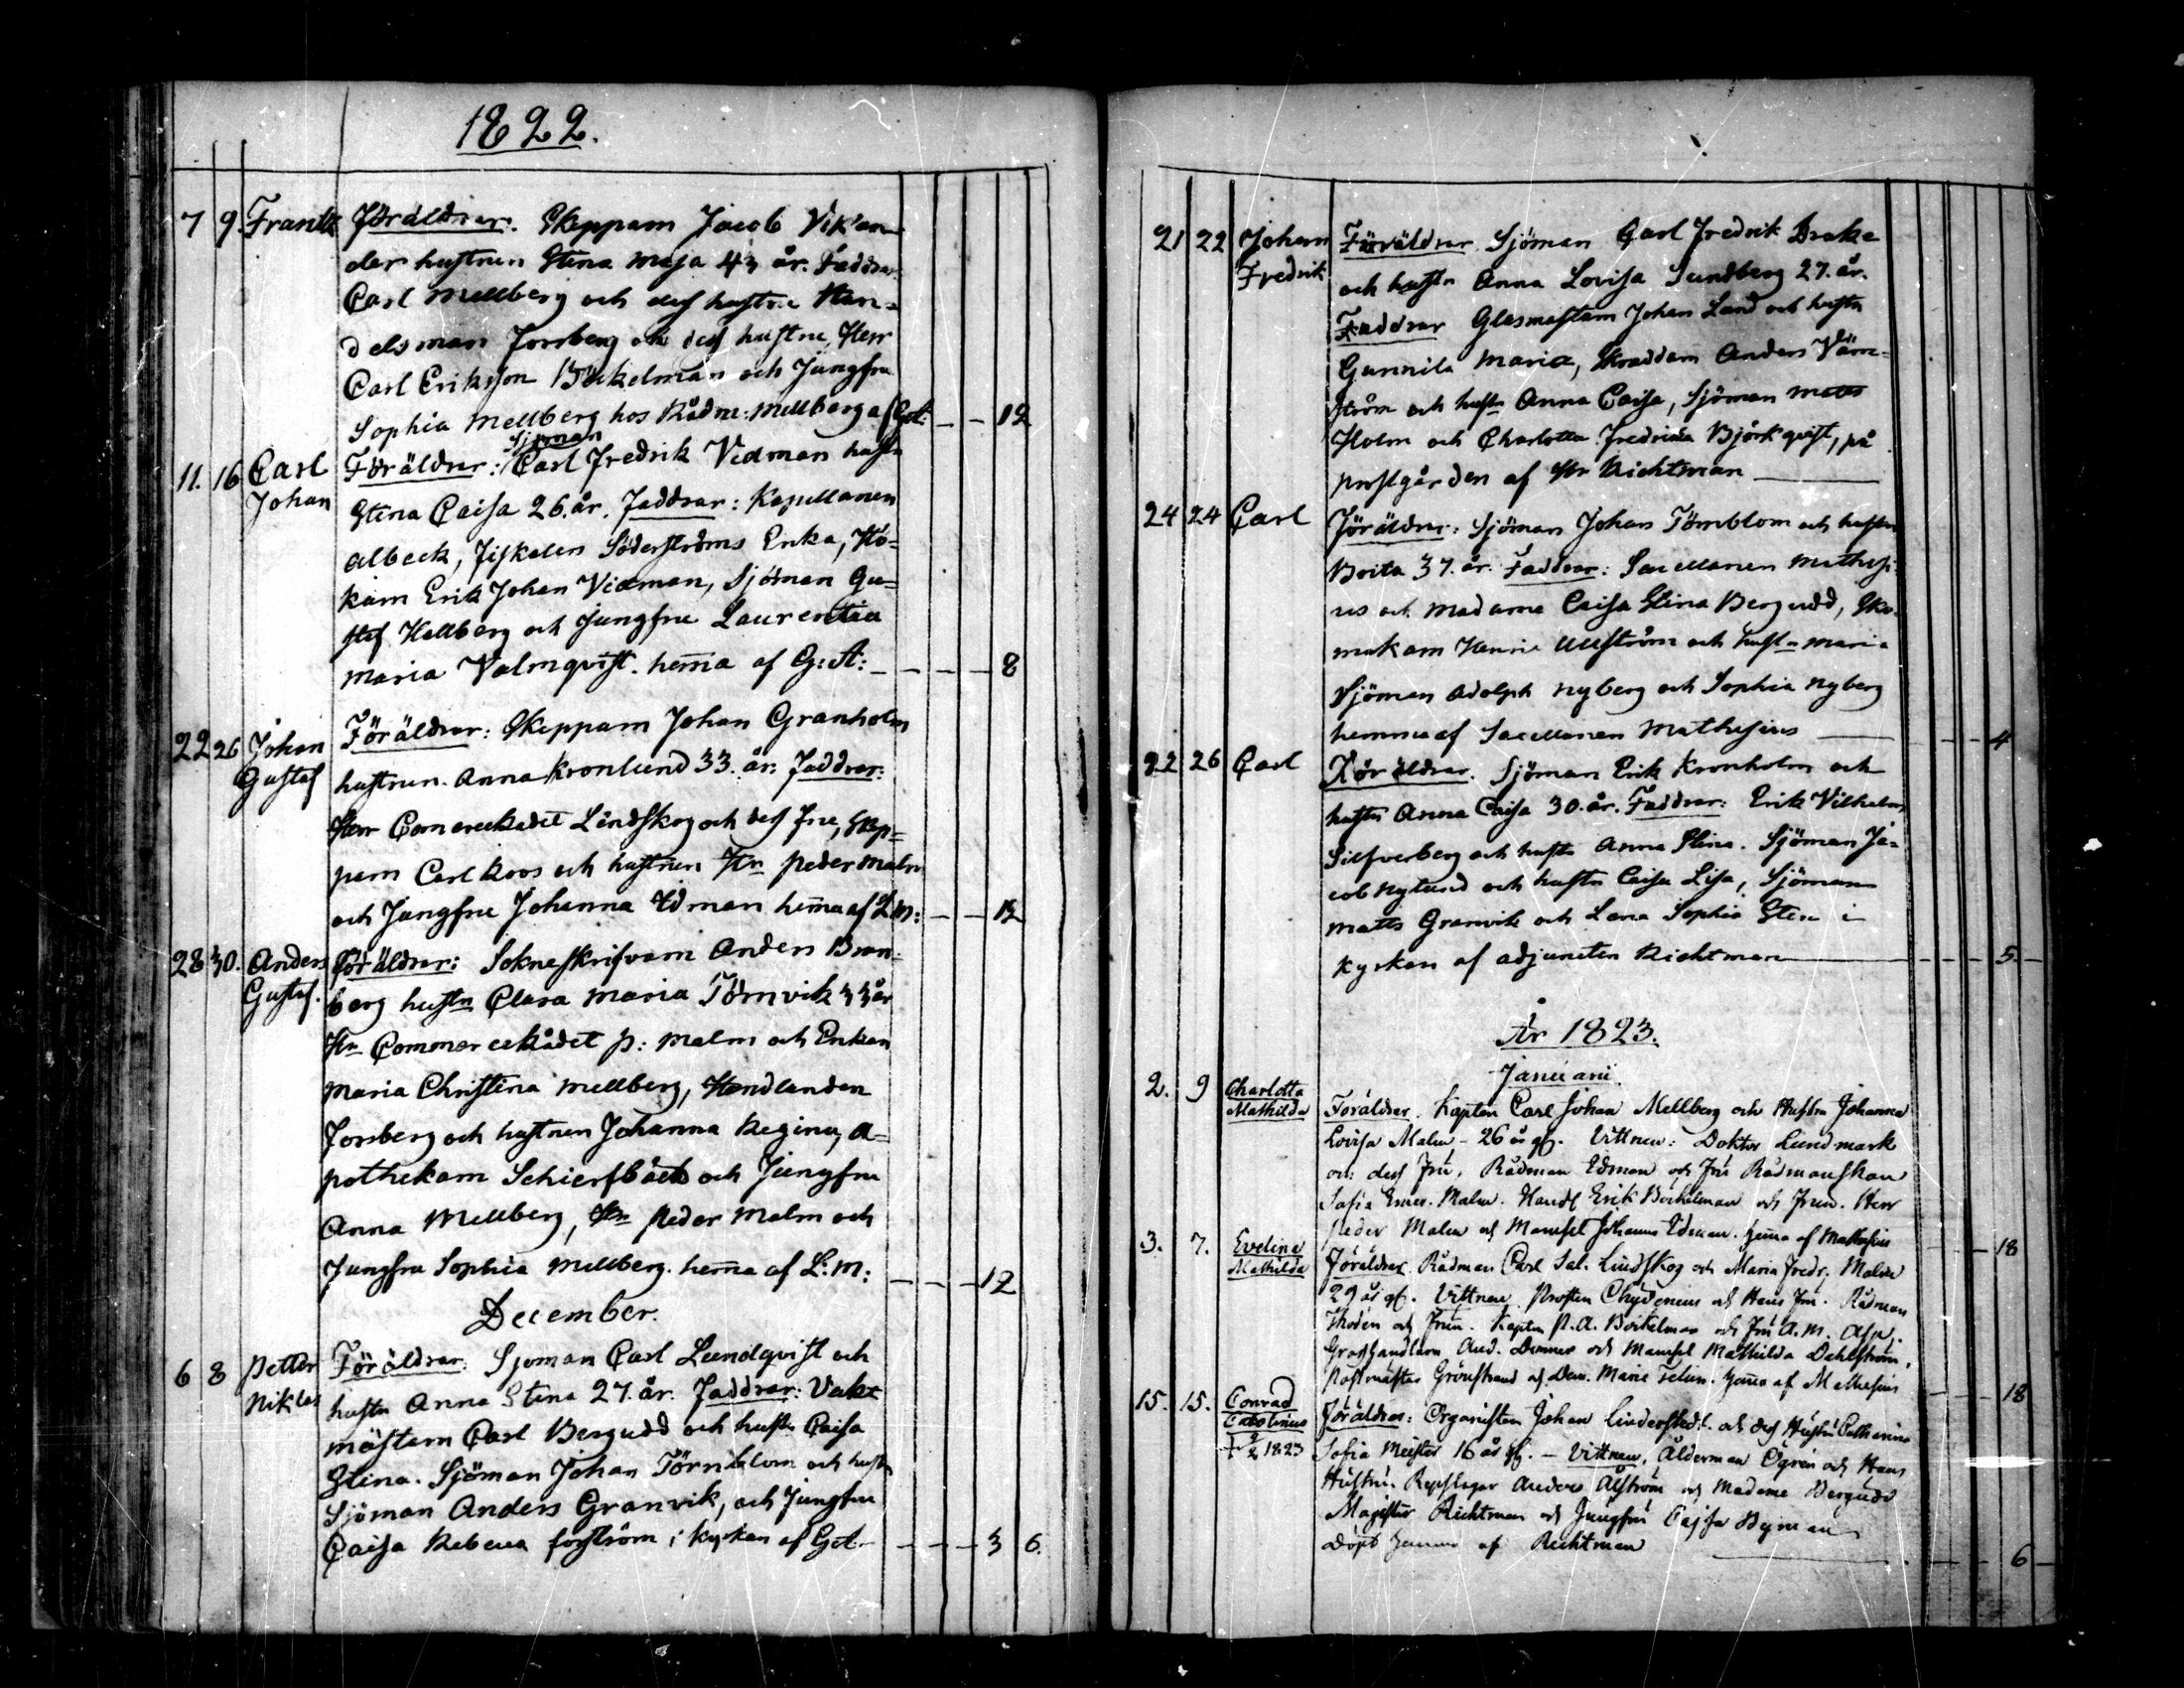 1822.
7 9. Frantz Föräldrar. Skepparn Jacob Vikan-
der hustrun Stina Maja 43 år. Faddrar
Carl Mellberg och dess hustru Han-
delsman Forsberg och dess hustru, Herr
Carl Eriksson Bäckelman och Jungfru
Sophia Mellberg hos Rådm: Mellberg af Gst: 12
11. 16 Carl Johan Föräldrar: Sjöman Carl Fredrik Vidman hustr
Stina Caisa 26. år. Faddrar: Kapellanen
Albeck, Fiskalen Söderströms Enka, Hö-
karn Erik Johan Vidman, Sjöman Gu-
staf Hellberg och Jungfru Laurentia
Maria Valmqvist. hemma af G: A: 8
22 26 Johan Gustaf Föräldrar: Skepparn Johan Granholm
hustrun. Anna Kronlund 33. år: Faddrar:
Herr Comercerådet Lindskog och dess Fru, Skep-
parn Carl Roos och hustrun Hr Peder Malm
och Jungfru Johanna Edman hemma af L: M: 12
28 30. Anders Gustaf. Föräldrar: Sokneskrifvarn Anders Bran-
berg hustr Clara Maria Törnvik 33 år
Hr Commerceerådet P: Malm och Enkan
Maria Christina Mellberg, Handlanden
Forsberg och hustrun Johanna Regina, A-
pothekarn Schierfbäck och Jungfru
Anna Mellberg, Hr Peder Malm och
Jungfru Sophia Mellberg. hemma af L: M: 12
December.
6 8 Petter Niklas Föräldrar: Sjöman Carl Lundqvist och
hustr Anna Stina 27. år. Faddrar: Vakt
mästarn Carl Bergudd och hustr Caisa
Stina. Sjöman Johan Törnblom och hustr
Sjöman Anders Granvik, och Jungfru
Caisa Rebecca Forström i kyrkan af Gst. 3 6.
21 22 Johan Fredrik Föräldrar Sjöman Carl Fredrik Drake
och hustr Anna Lovisa Sundberg 27. år.
Faddrar Glasmästarn Johan Land och hustr
Gunnila Maria, Skräddarn Anders Värn-
ström och hustr Anna Caisa, Sjöman Matts
Holm och Charlotta Fredrika Björkqvist, på
prostgården af Hr Richtman
24 24 Carl Föräldrar: Sjöman Johan Törnblom och hustr
Brita 37. år. Faddrar: Sacellanen Mathesi-
us och Madame Caisa Stina Bergudd, Sko-
makarn Henric Ullström och hustr Maria
Sjöman Adolph Nyberg och Sophia Nyberg
hemma af Sacellanen Mathesius 4
22 26 Carl Föräldrar. Sjöman Erik Kronholm och
hustr Anna Caisa 30. år. Faddrar: Erik Vilhelm
Silfverberg och hustr Anna Stina. Sjöman Ja-
cob Nylund och hustr Caisa Lisa, Sjöman
Matts Granvik och Lena Sophia Sten i
kyrkan af adjuncten Richtman 5.
År 1823.
Januarii.
2. 9 Charlotta Mathilda Föräldrar. Kapten Carl Johan Mellberg och Hustru Johanna
Lovisa Malm - 26 år gl. Vittnen: Doktor Lundmark
och dess Fru. Rådman Edman och Fru Rådmanskan
Sofia Malm. Handl Erik Böckelman och Frun. Herr
Peder Malm och Mamsel Johanna Edman. hemma af Mathesius 18
3. 7. Evelina Mathilda Föräldrar. Rådman Carl Sal. Lindskog och Maria Fredr. Malm
29 år gl. Vittnen Prosten Chydenius och Hans Fru. Rådman
och Frun. Kapten P. A. Böckelman och Fru A. M.
Grosshandlarn And. Donner och Mamsel Mathilda Dahlström,
Postmästar Grönstrand och Dem. Maria hemma af Mathesius 18
15. 15. Conrad Carolinus Föräldrar: Organisten Johan Linderstedt och dess Hustru Catharina
2/2 1823 Sofia Meister 16 år gl. - Vittnen. Ålderman Ögren och Hans
Hustru. Repslagar Anders Ahlström och Madame Bergudd
Magister Richtman och Jungfru Cajsa Byman
Döpt hemma af Richtman 6